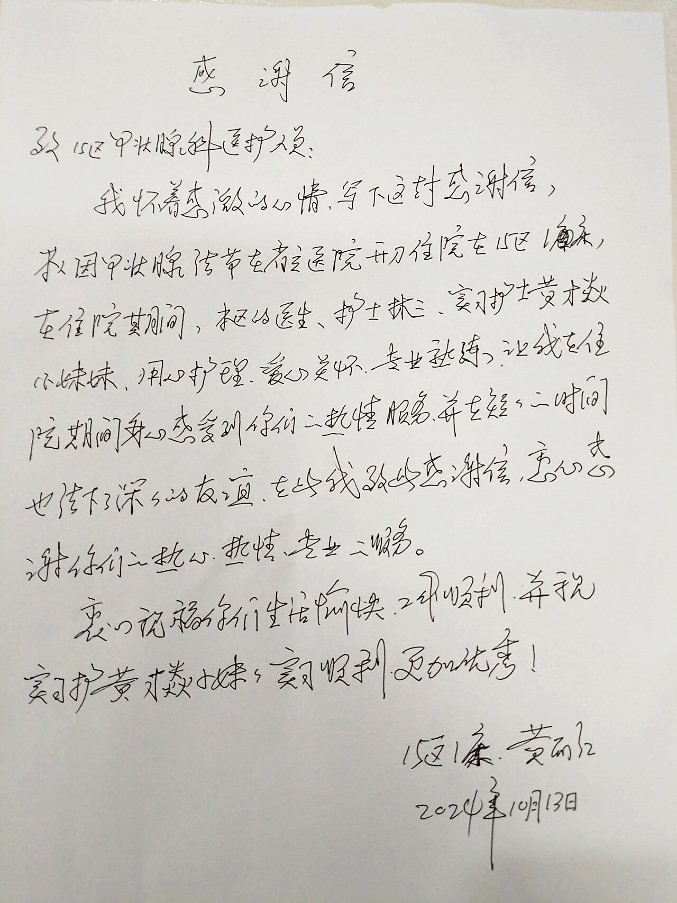 感谢信
致15区甲状腺科医护人员:
我怀着感激的心情、写下这封感谢信,
我因甲状腺结节在省立医院开刀住院在15区1床,
在住院其期间、本区的医生、护士妹妹、实习护士黄
小妹妹、用心护理、爱心关怀、专业熟练、让我在住
院期间身心感受到你们的热情服务、并在短短的时间
也结下了深深的友谊、在此我致此感谢信、衷心感
谢你们的热心、热情、专业的服务。
衷心祝福你们生活愉快、工作顺利、并祝
实习护黄小妹妹实习顺利、更加优秀!
15区1床、黄丽
2024年10月13日